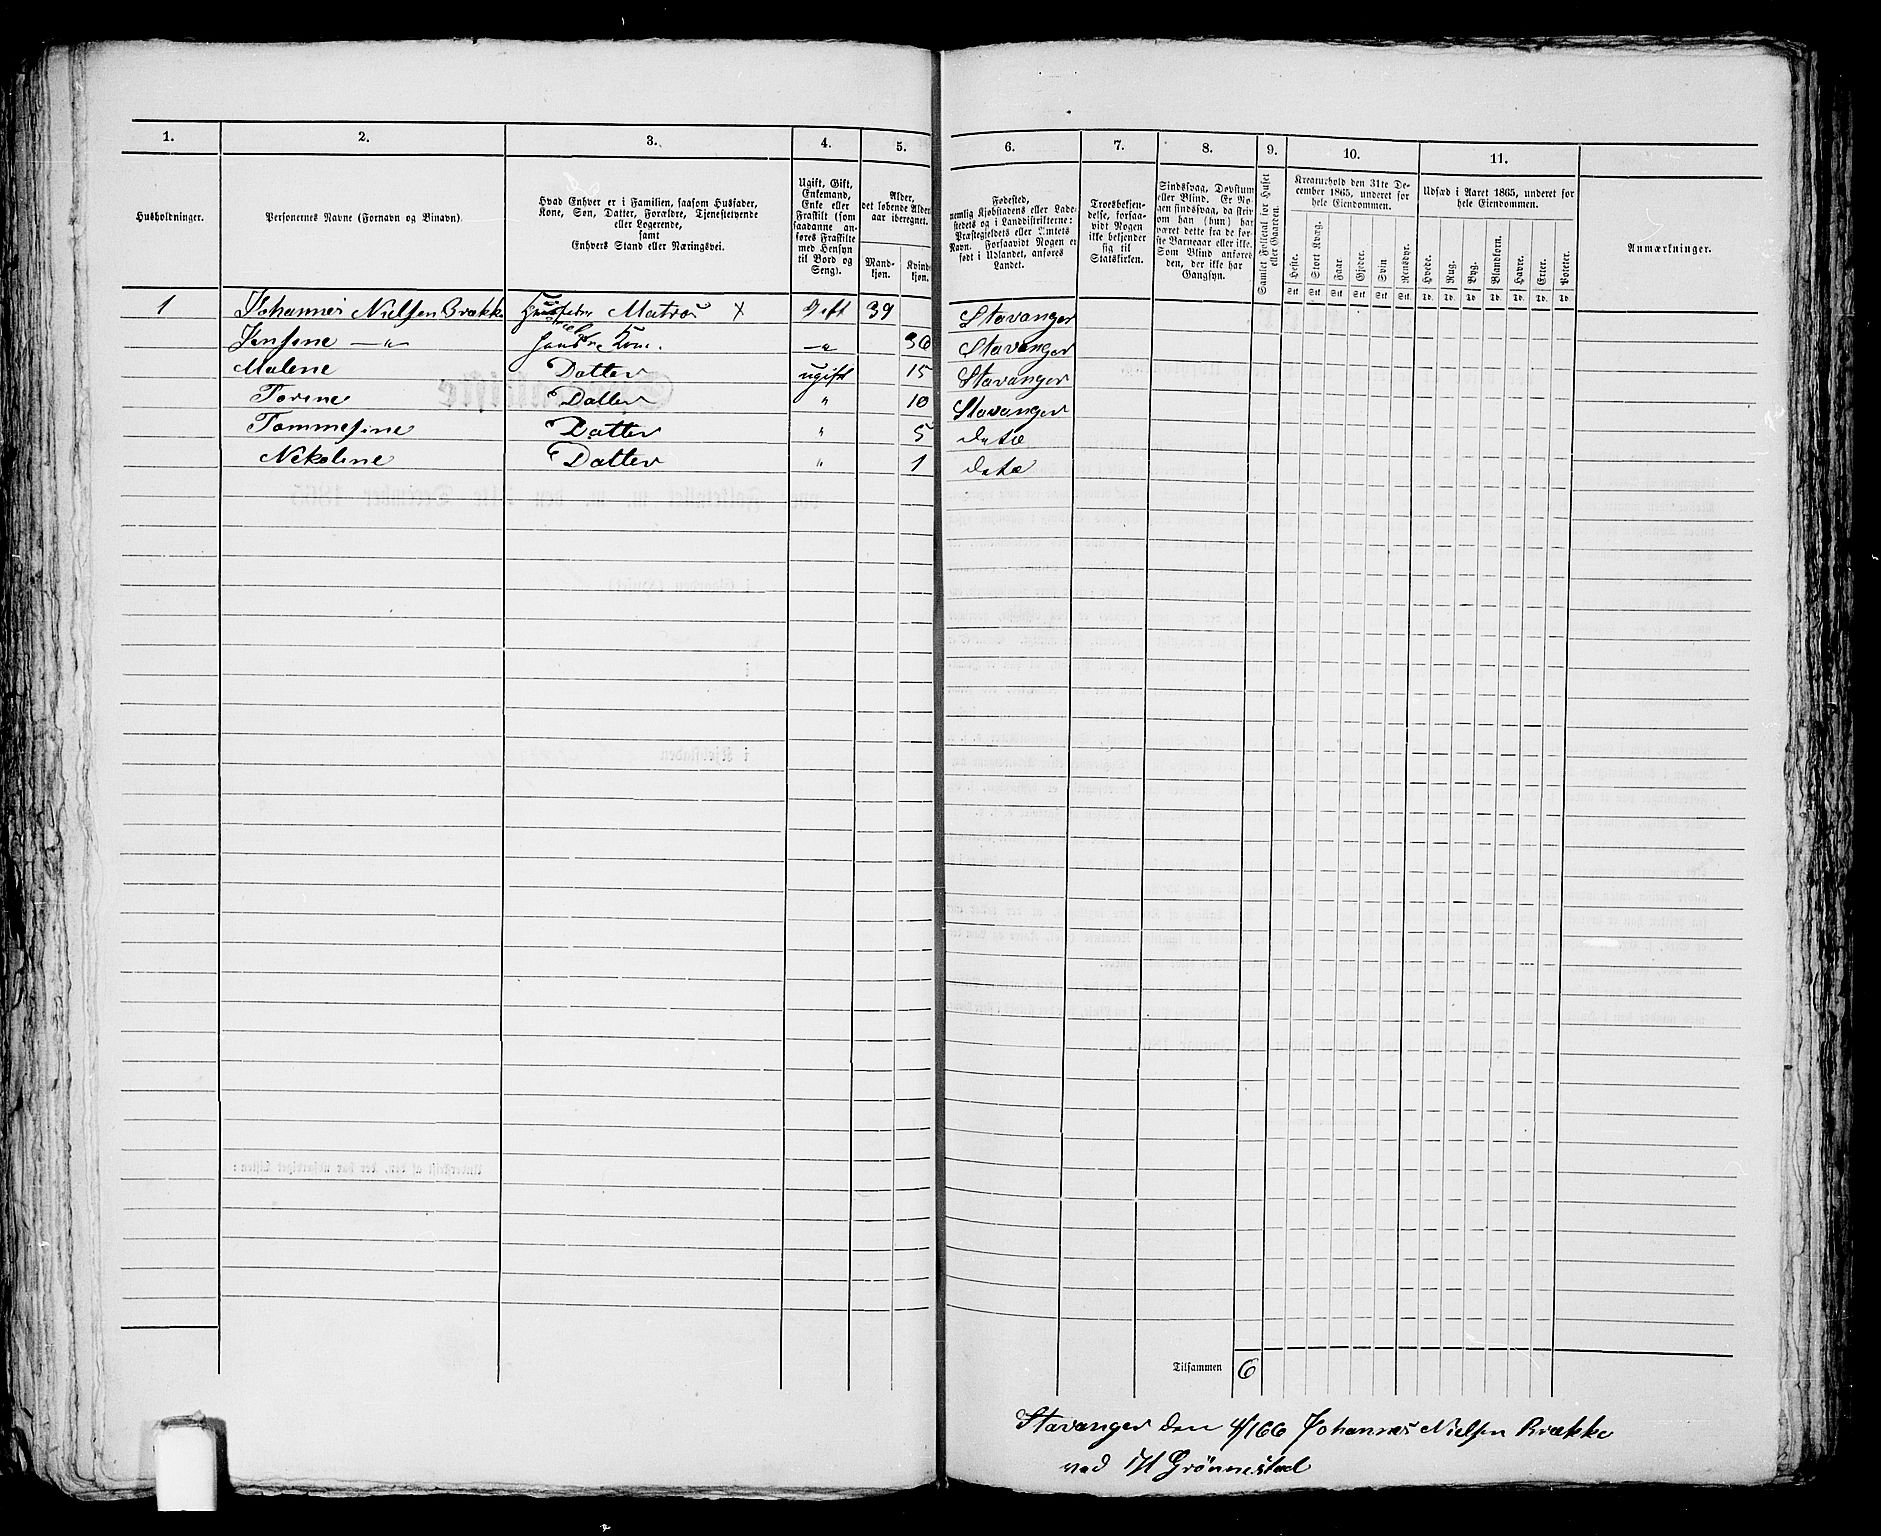 1. 2. 3. 4. 5.
Husholdninger.
Personernes Navne (Fornavn og Binavn).
Hvad Enhver er i Familien, saasom Husfader,
Kone, Søn, Datter, Forældre, Tjenestetyende
eller Logerende,
samt
Enhvers Stand eller Næringsvei.
Ugift, Gift,
Enkemand,
Enke eller
Fraskilt (som
saadanne an-
føres Fraskilte
med Hensyn
til Bord og
Seng).
Alder,
det løbende Alders-
aar iberegnet.
Mand-
kjøn.
Kvinde-
kjøn.
1 Johannes Nielsen Brække Husfader Matros x Gift 39
Jensine —"— hans Kone. —" 36
Malene Datter ugift 15
Torine Datter " 10
Tommesine Datter " 5
Nikoline Datter " 1
6. 7. 8. 9. 10. 11.
Fødested,
nemlig Kjøbstadens eller Lade-
stedets og i Landdistrikterne:
Præstegjeldets eller Amtets
Navn. Forsaavidt Nogen er
født i Udlandet, anføres
Landet.
Troesbekjen-
delse, forsaa-
vidt Nogen
ikke bekjender
sig til
Statskirken.
Sindssvag, Døvstum
eller Blind. Er No-
gen sindssvag, da skriv
om han (hun) har
været dette fra de før-
ste Barneaar eller ikke.
Som Blind anføres
den, der ikke har
Gangsyn.
Samlet Folketal for Huset
eller Gaarden.
Kreaturhold den 31te De-
cember 1865, underet for
hele Eiendommen.
Heste. Stort Kvæg. Faar. Gjeder. Svin Rensdyr.
Stk. Stk. Stk. Stk. Stk. Stk.
Udsæd i Aaret 1865, underet for
hele Eiendommen.
Hvede. Rug. Byg. Blandkorn. Havre. Erter. Poteter.
Td. Td. Td. Td. Td. Td. Td.
Anmærkninger.
Stavanger
Stavanger
Stavanger
Stavanger
dato
dato
Tilsammen 6
Stavanger den 4/1 66 Johannes Nielsen Brække
ved Grönnestad